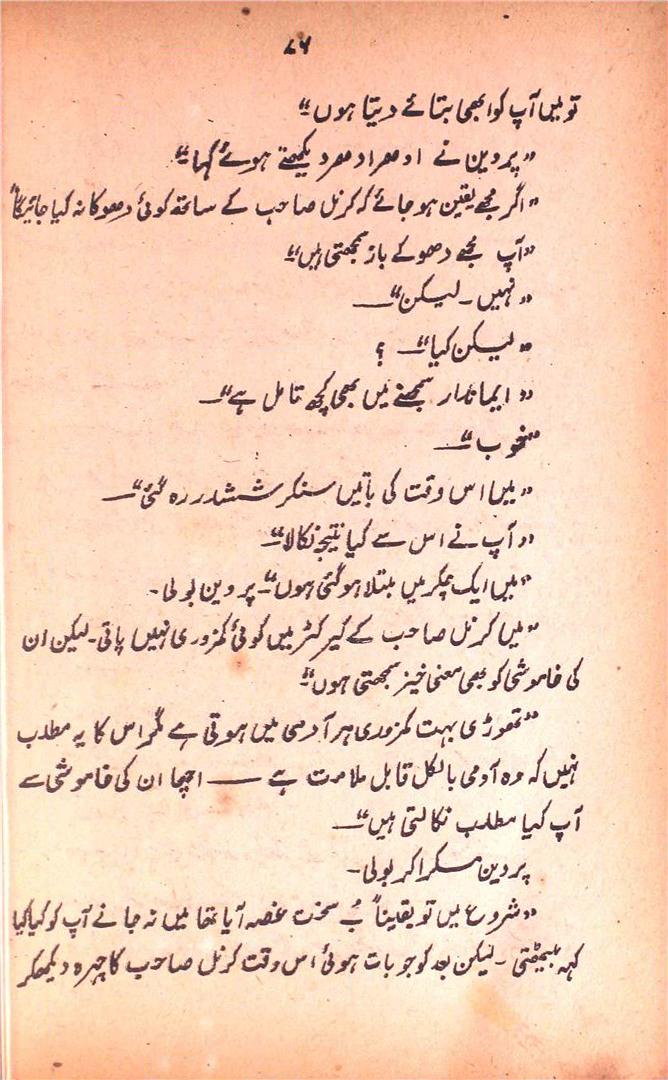 ۷۶
تو میں آپ کو ابھی بتائے دیتا ہوں"
"پروین نے ادھر ادھر دیکھتے ہوئے کہا"
"اگر مجھے یقین ہو جائے کہ کرنل صاحب کے ساتھ کوئی دھوکا نہ کیا جائیگا"
"آپ مجھے دھوکے باز سمجھتی ہیں"
"نہیں ۔ لیکن" ــــ
"لیکن کیا" ــ ؟
"ایماندار سمجھنے میں بھی کچھ تامل ہے" ــ
"خوب" ــ
"میں اس وقت کی باتیں سنکر ششدر رہ گئی" ــ
"آپ نے اس سے کیا نتیجہ نکالا" ــ
"میں ایک چکر میں مبتلا ہو گئی ہوں" ــ پروین بولی ۔
"میں کرنل صاحب کے کیرکٹر میں کوئی کمزوری نہیں پاتی ۔ لیکن ان
کی خاموشی کو بھی معنی خیز سمجھتی ہوں"
"تھوڑی بہت کمزوری ہر آدمی میں ہوتی ہے مگر اس کا یہ مطلب
نہیں کہ وہ آدمی بالکل قابل ملامت ہے ــــ اچھا ان کی خاموشی سے
آپ کیا مطلب نکالتی ہیں" ــ
پروین مسکرا کر بولی ۔
"شروع میں تو یقیناً سخت غصہ آیا تھا میں نہ جانے آپ کو کیا کیا
کہہ بیٹھتی ۔ لیکن بعد کو جو بات ہوئی اس وقت کرنل صاحب کا چہرہ دیکھکر